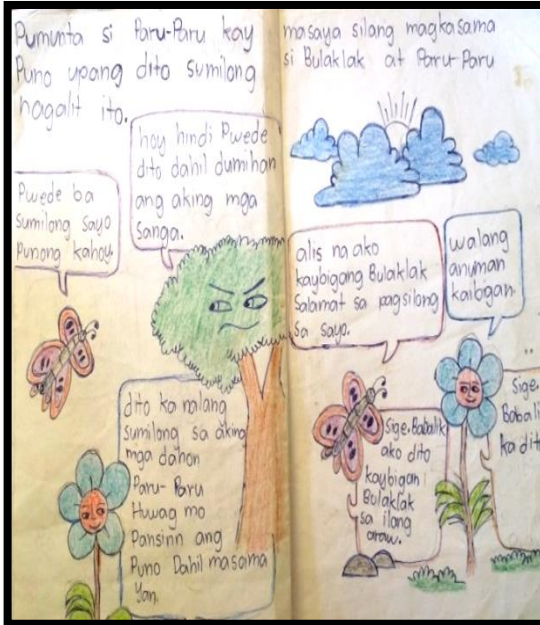 Pumunta si Paru-Paru kay
Puno upang dito sumilong
nagalit ito.
hoy hindi Pwede
dito dahil dumihan
ang aking mga
Sanga.
Pwede ba
sumilong sayo
Punong kahoy.
dito ka nalang
sumilong sa aking
mga dahon
Paru-Paru
Huwag mo
Pansinn ang
Puno Dahil masama
Yan.
masaya silang magkasama
si Bulaklak at Paru-Paru
alis na ako
kaybigang Bulaklak
Salamat sa pagsilong
sa sayo.
walang
anuman
kaibigan.
Sige. Babalik
ako dito
kaybigan
Bulaklak
sa ilang
araw.
Sige.
Babali
ka dit